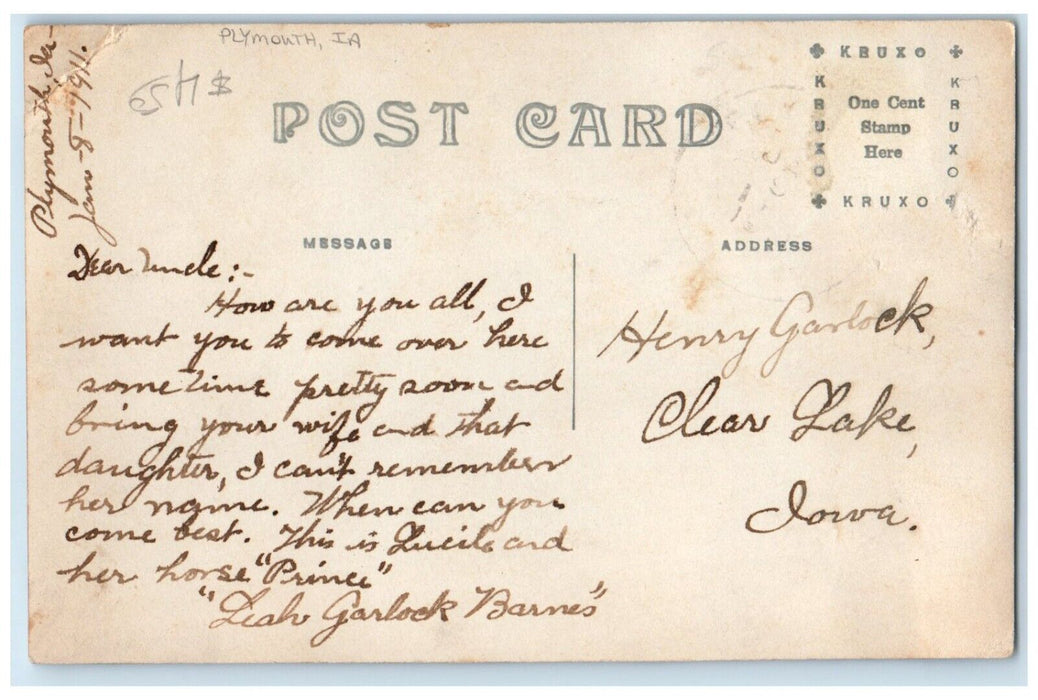 PLYMOUTH, IA
Plymouth, Ia-
Jan-8-1911.
POST CARD
KRUXO
KRUXO
One Cent
Stamp
Here
KRUXO
KRUXO
MESSAGE
Dear Uncle:-
How are you all, I
want you to come over here
sometime pretty soon and
bring your wife and that
daughter, I can't remember
her name. When can you
come best. This is Lucile and
her horse "Prince"
"Leah Garlock Barnes"
ADDRESS
Henry Garlock,
Clear Lake,
Iowa.